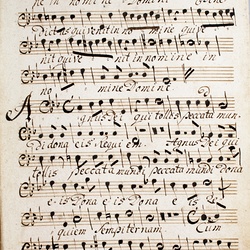 ne in nomine Domini
Dictus qui venit in no mine qui ve
nit qui ve nit in nomine in
no mine Domine
Agnus Dei qui tollis peccata mun
Di dona eis requi em. Agnus Dei qui
tollis peccata mundi peccata mundi Dona
e is Dona e is Dona e is
quiem Sempiternam Cum